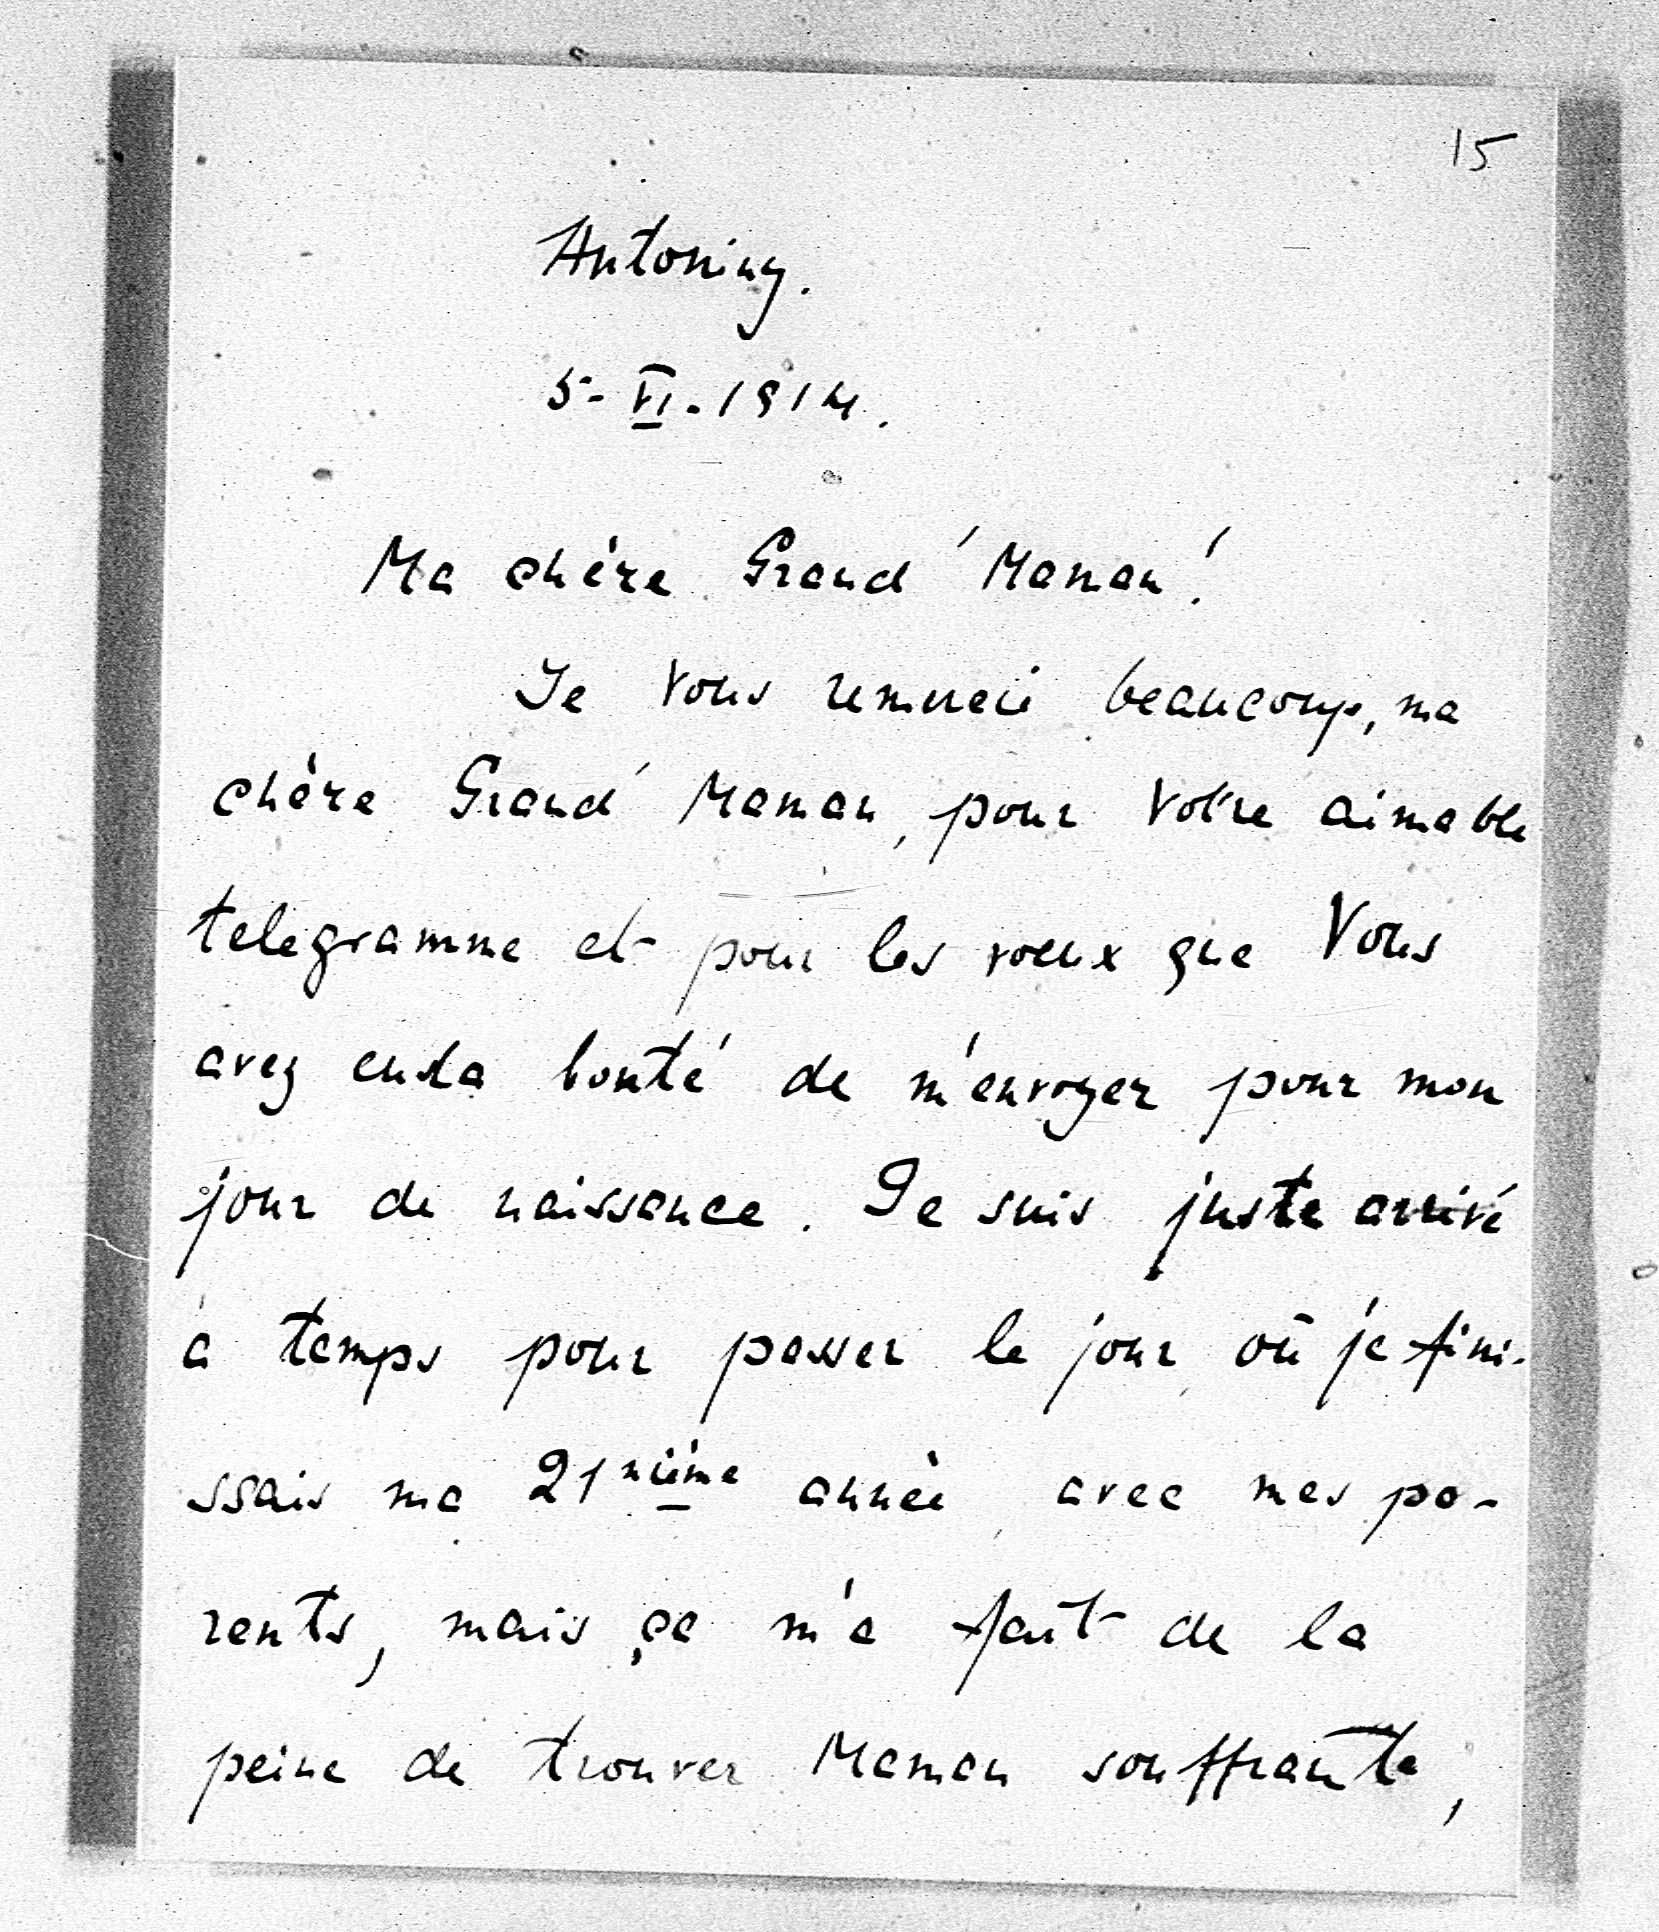 15
Antoniny.
5-VI-1914.
Ma chère Grand' Maman!
Je Vous remercie beaucoup, ma
chère Grand' Maman, pour Votre aimable
telegramme et pour les voeux que Vous
avez eu la bonté de m'envoyer pour mon
jour de naissance. Je suis juste arrivé
à temps pour passer le jour où je fini-
ssais ma 21nième année avec mes pa-
rents, mais ça m'a fait de la
peine de trouver Maman souffrante,